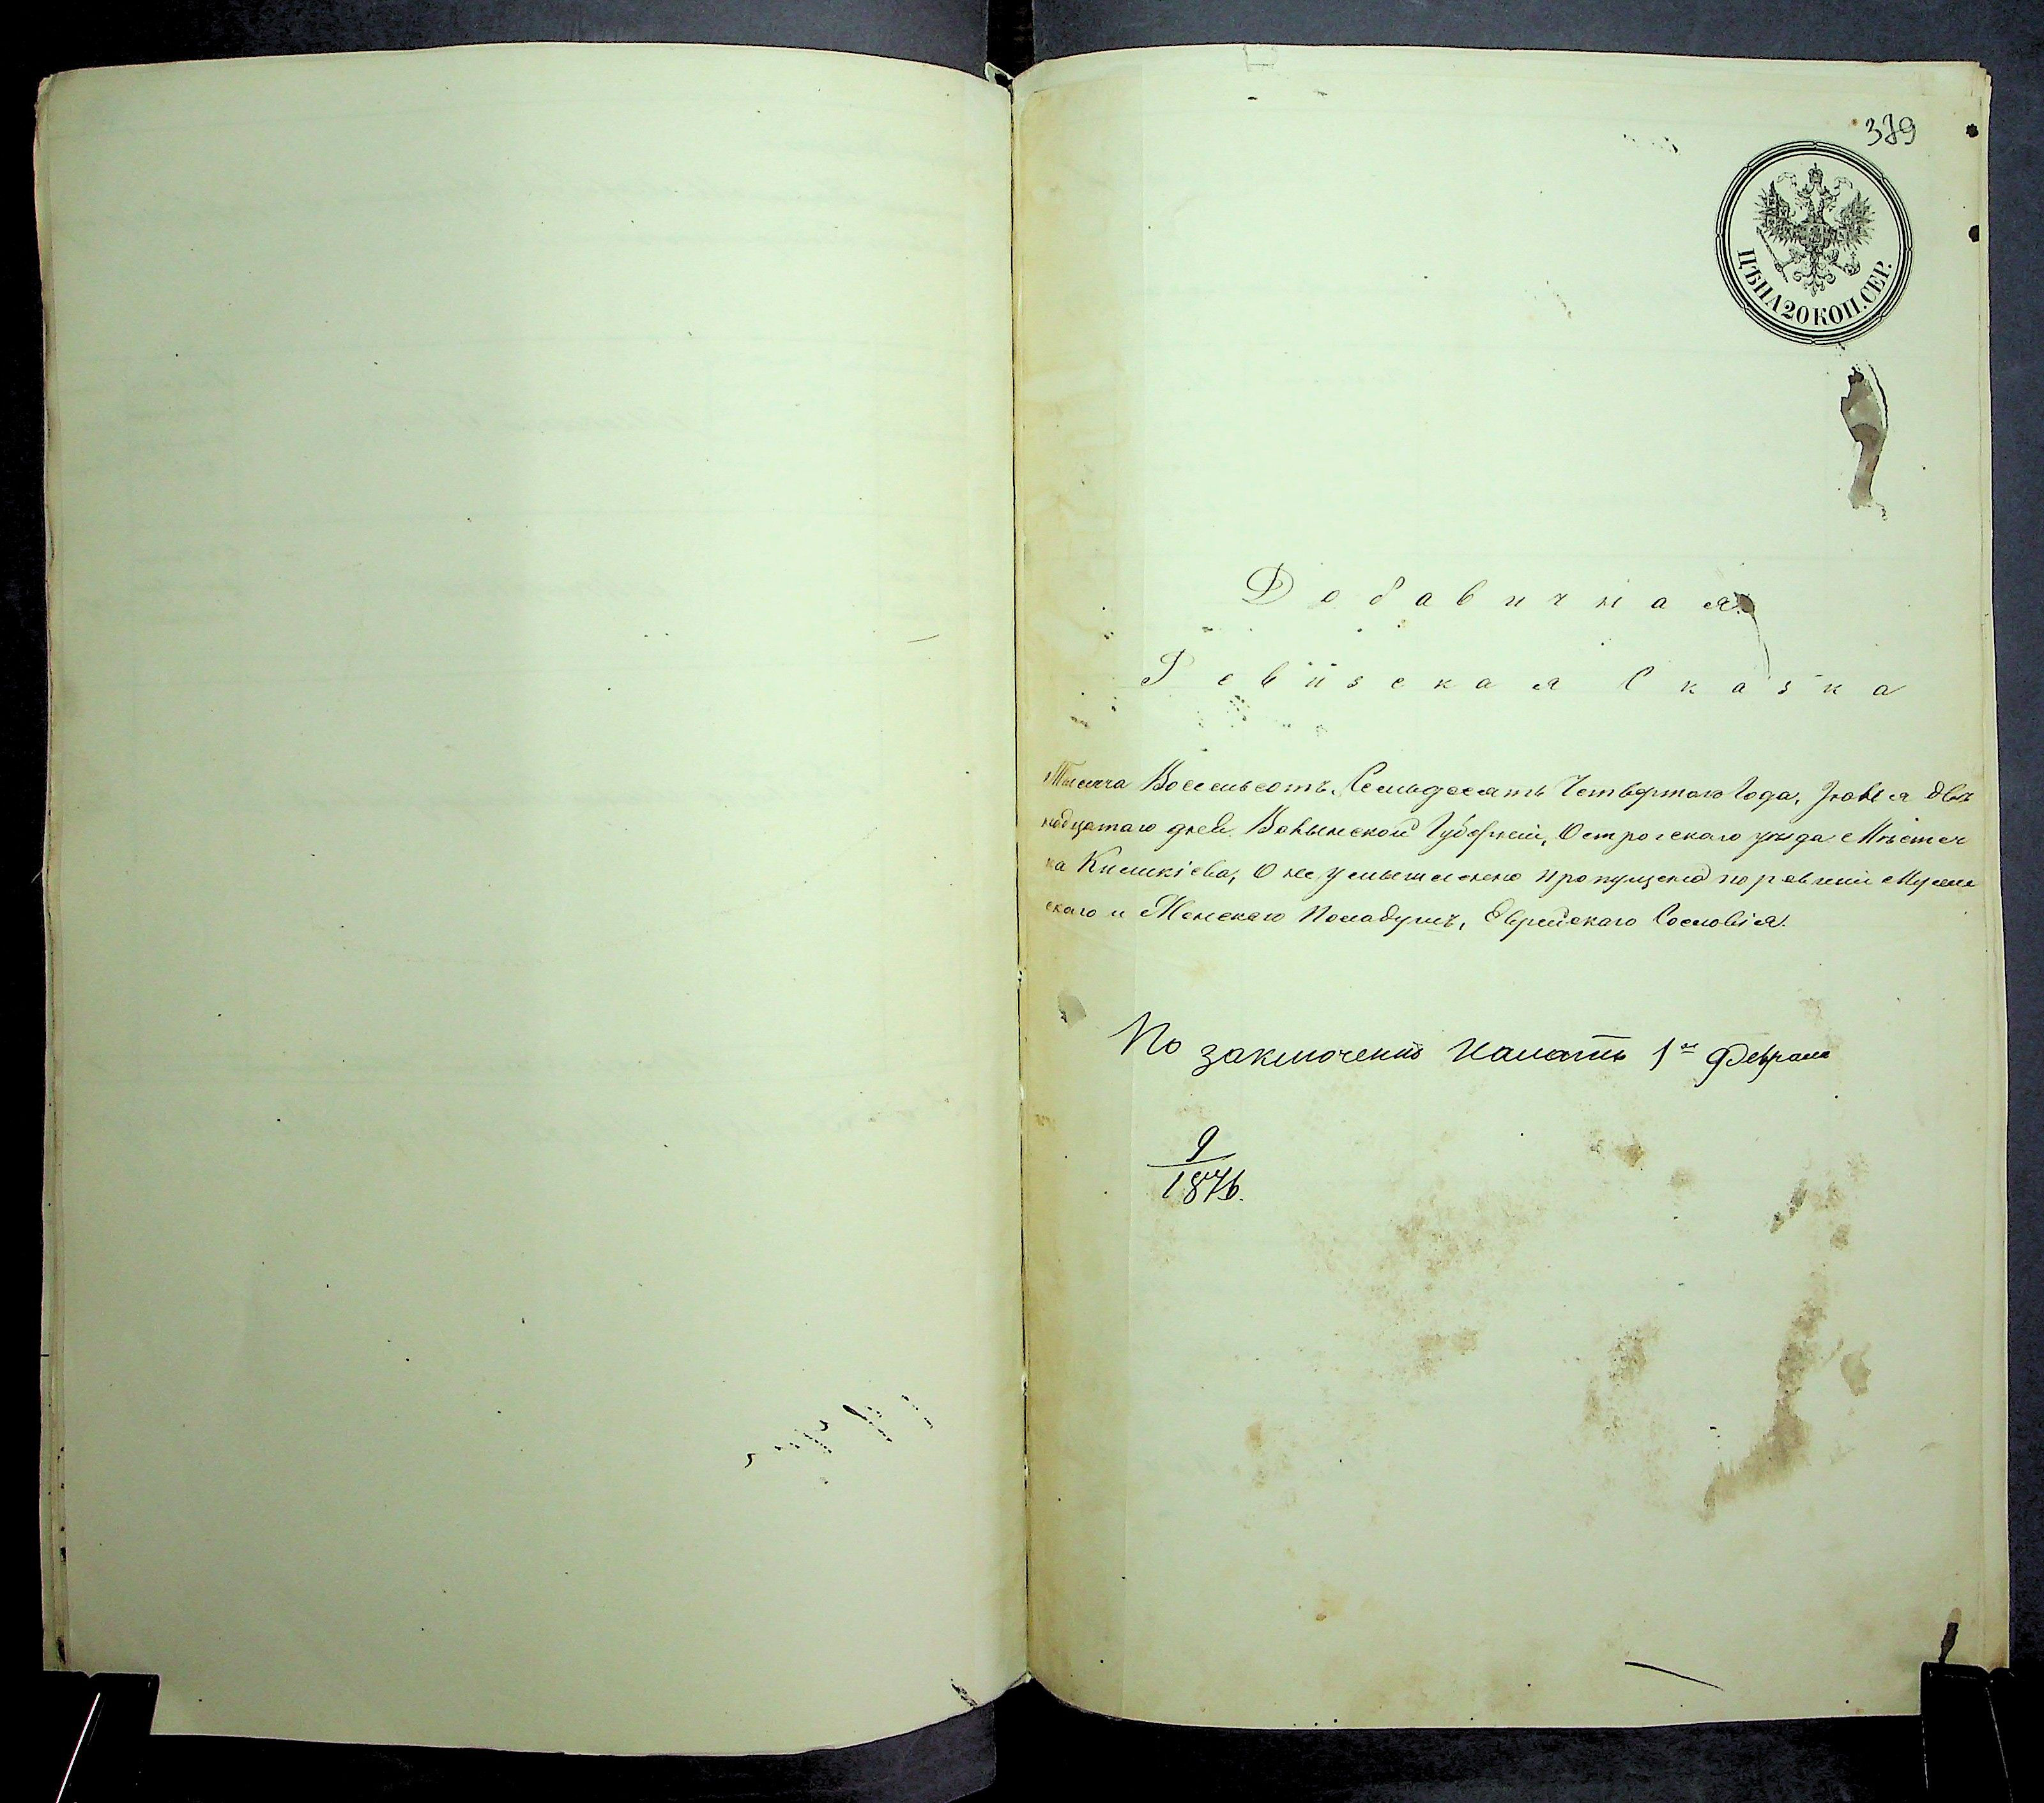 379
ЦѢНА 20 КОП. СЕР.
Добавичная
Ревизская Сказка
Тысяча Восемьсотъ Семьдесятъ Четвертаго Года, Июля два
надцатаго дня Волынской Губернии, Острогскаго уѣзда Мѣстеч
ка Киликіева, О не умышленно пропущеной по ревизіи Муже
скаго и Женскаго пола душъ, Еврейскаго Сословія.
По заключенію палаты 1го Февраля
9
1876.